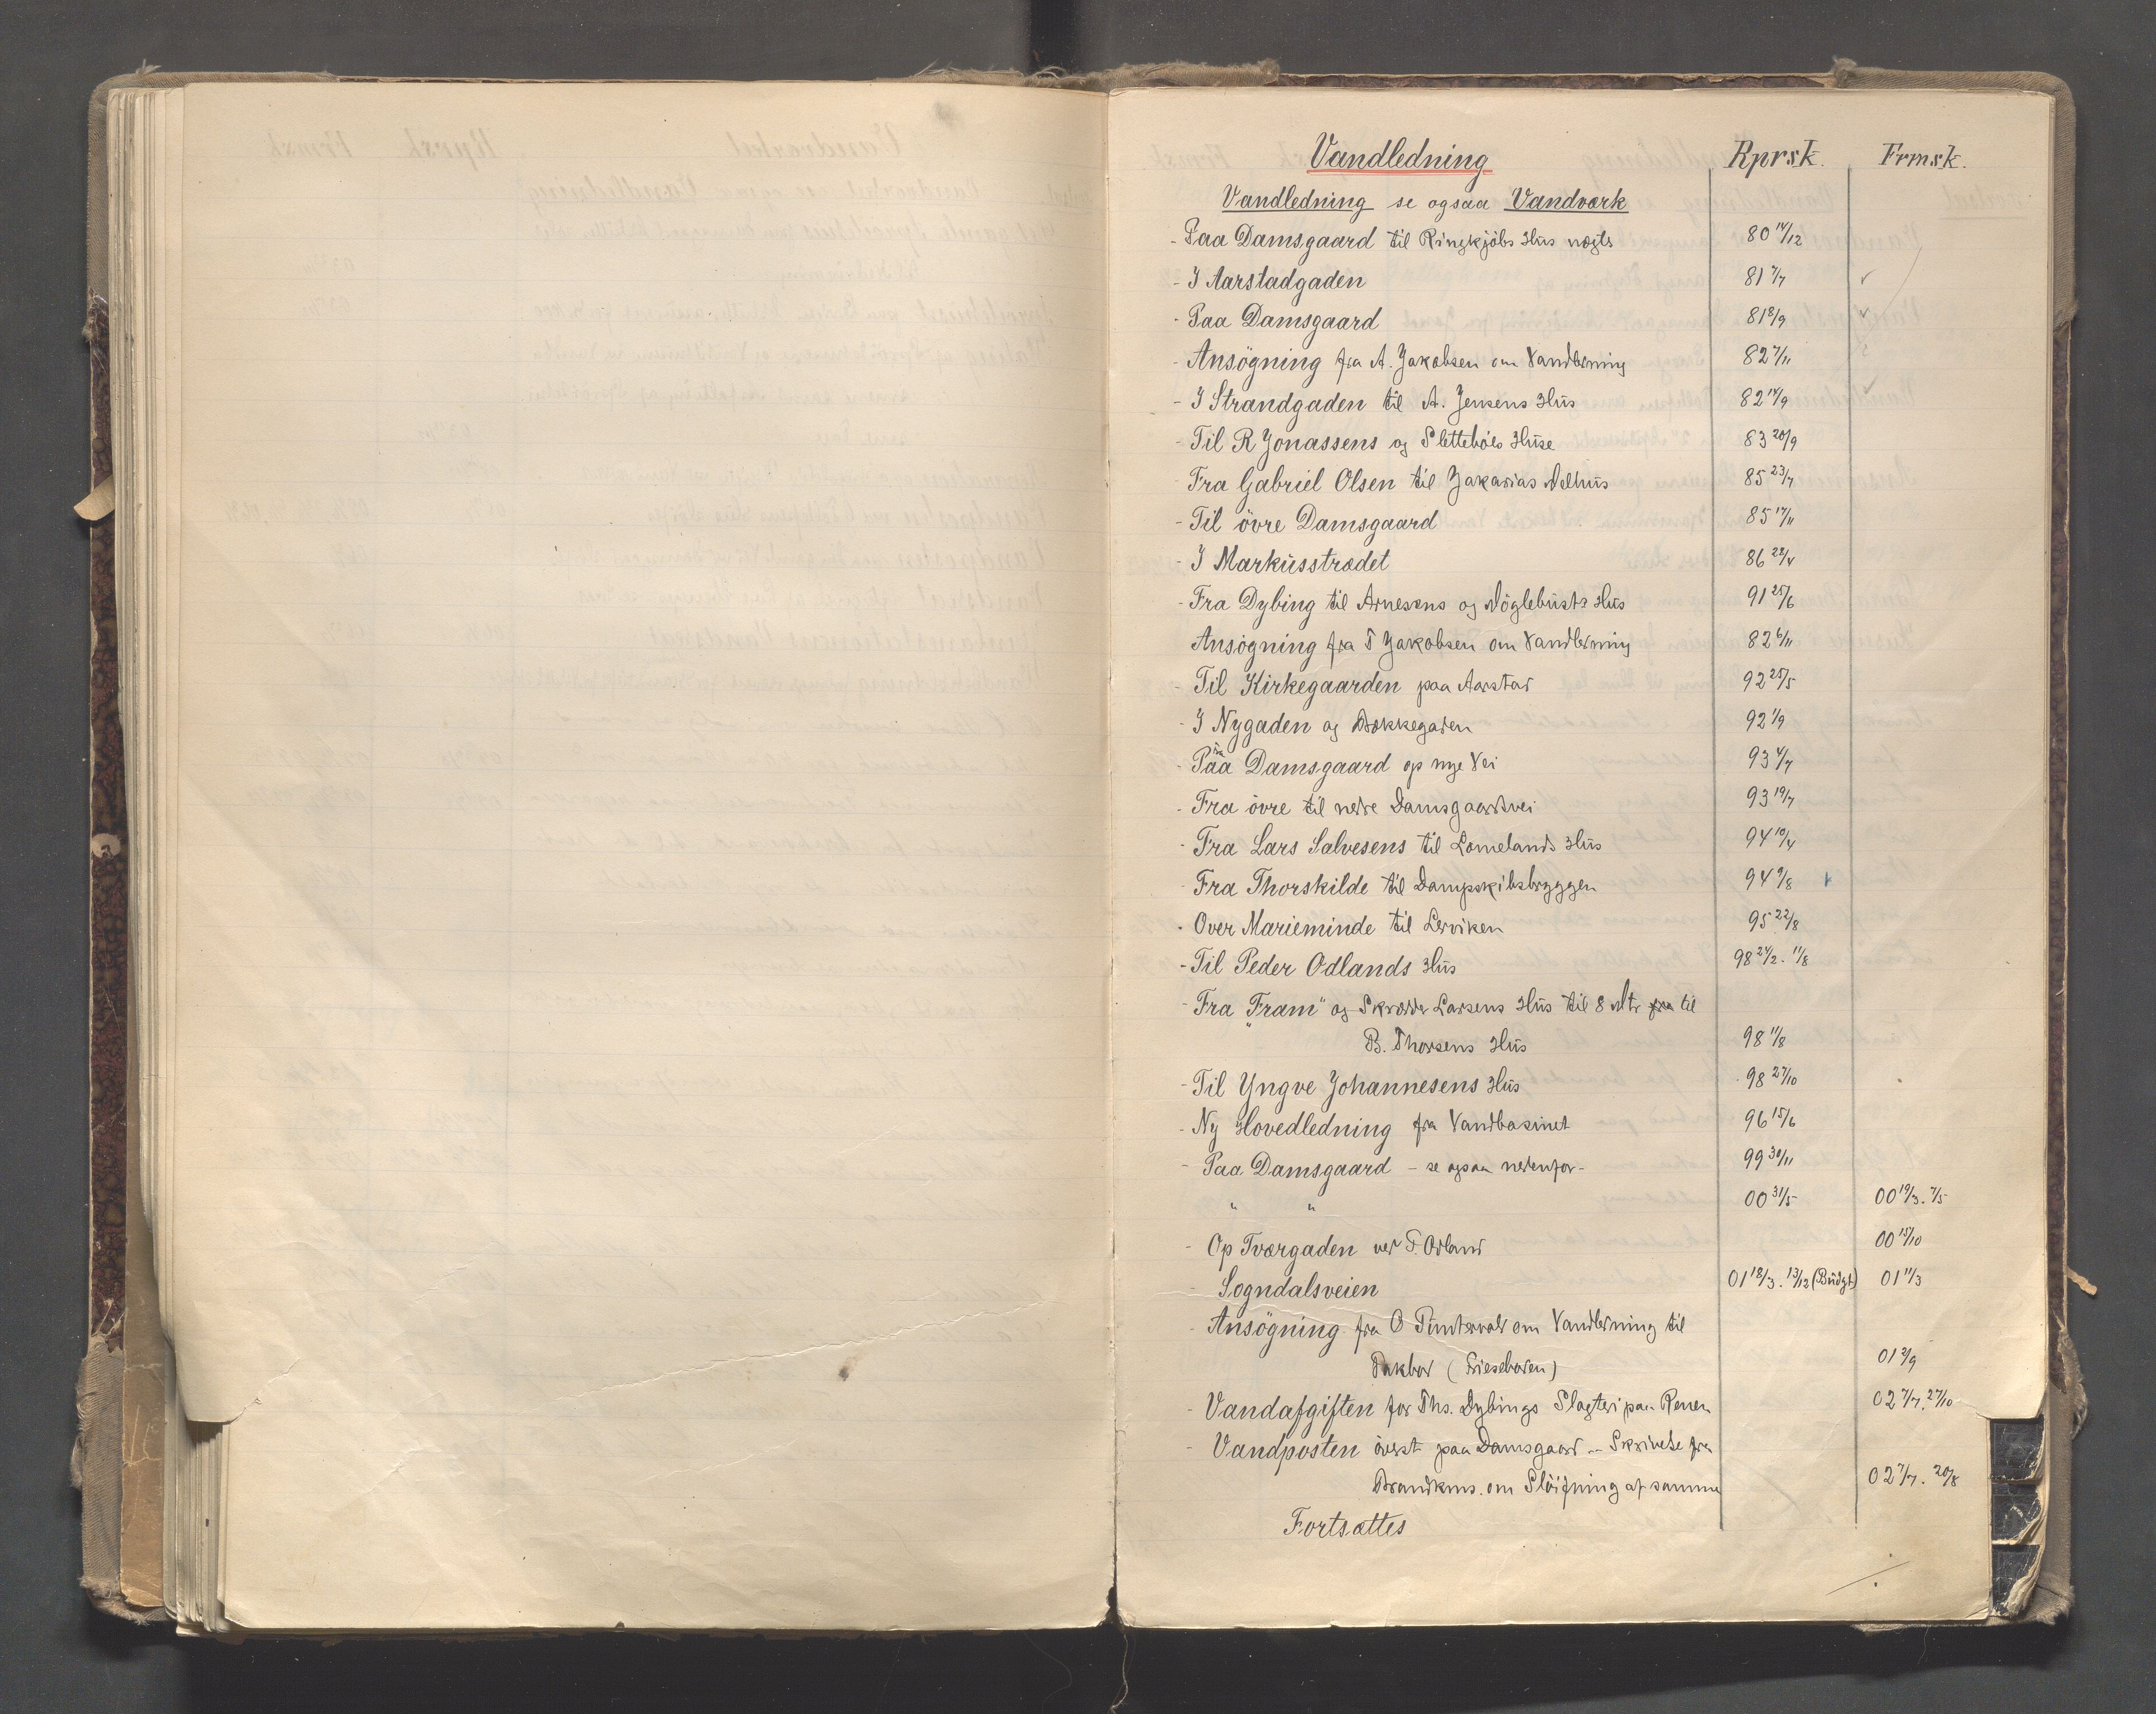 Vandledning Rprsk. Frmsk.
Vandledning se ogsaa Vandværk
- Paa Damsgaard til Ringkjøbs Hus nægts 80 14/12
- I Aarstadgaden 81 7/7 ✓
- Paa Damsgaard 81 8/9 ✓
- Ansøgning fra A. Jakobsen om Vandledning 82 7/11
- I Strandgaden til A. Jensens Hus 82 14/9 ✓
- Til R Jonassens og Slettebøes Huse 83 20/9
- Fra Gabriel Olsen til Zakarias Nelhus 85 23/7
- Til övre Damsgaard 85 17/11
- I Markusstrædet 86 28/4
- Fra Dybing til Arnesens og Nøglebusts Hus 91 25/6
Ansøgning fra T Jakobsen om Vandledning 82 6/11
- Til Kirkegaarden paa Aarstad 92 25/5
- I Nygaden og Bækkegaden 92 1/9
- Paa Damsgaard op nye Vei 93 4/7
- Fra övre til nedre Damsgaardsvei 93 19/7
- Fra Lars Salvesens til Lomelands Hus 94 10/4
- Fra Thorskilde til Dampskibsbryggen 94 9/8
- Over Marieminde til Lerviken 95 22/8
- Til Peder Odlands Hus 98 24/2. 11/8
- Fra "Fram" og Skrædder Larsens Hus til 8 Mtr fra til
B. Thorsens Hus 98 11/8
- Til Yngve Johannesens Hus 98 27/10
- Ny Hovedledning fra Vandbasinet 96 15/6
- Paa Damsgaard - se ogsaa nedenfor - 99 30/11
" " 00 31/5 00 19/3. 7/5
- Op Tværgaden ved F. Odland 00 15/10
- Sogndalsveien 01 18/3. 13/12 (Budgt) 01 11/3
- Ansøgning fra O Puntervold om Vandledning til
Pakbod (Frieseboden) 01 2/9
- Vandafgiften for Ths. Dybings Slagteri paa Renen 02 7/7. 27/10
- Vandposten øverst paa Damsgaard - Skrivelse fra
Brandkms. om Sløifning af samme 02 7/7. 20/8
Fortsættes